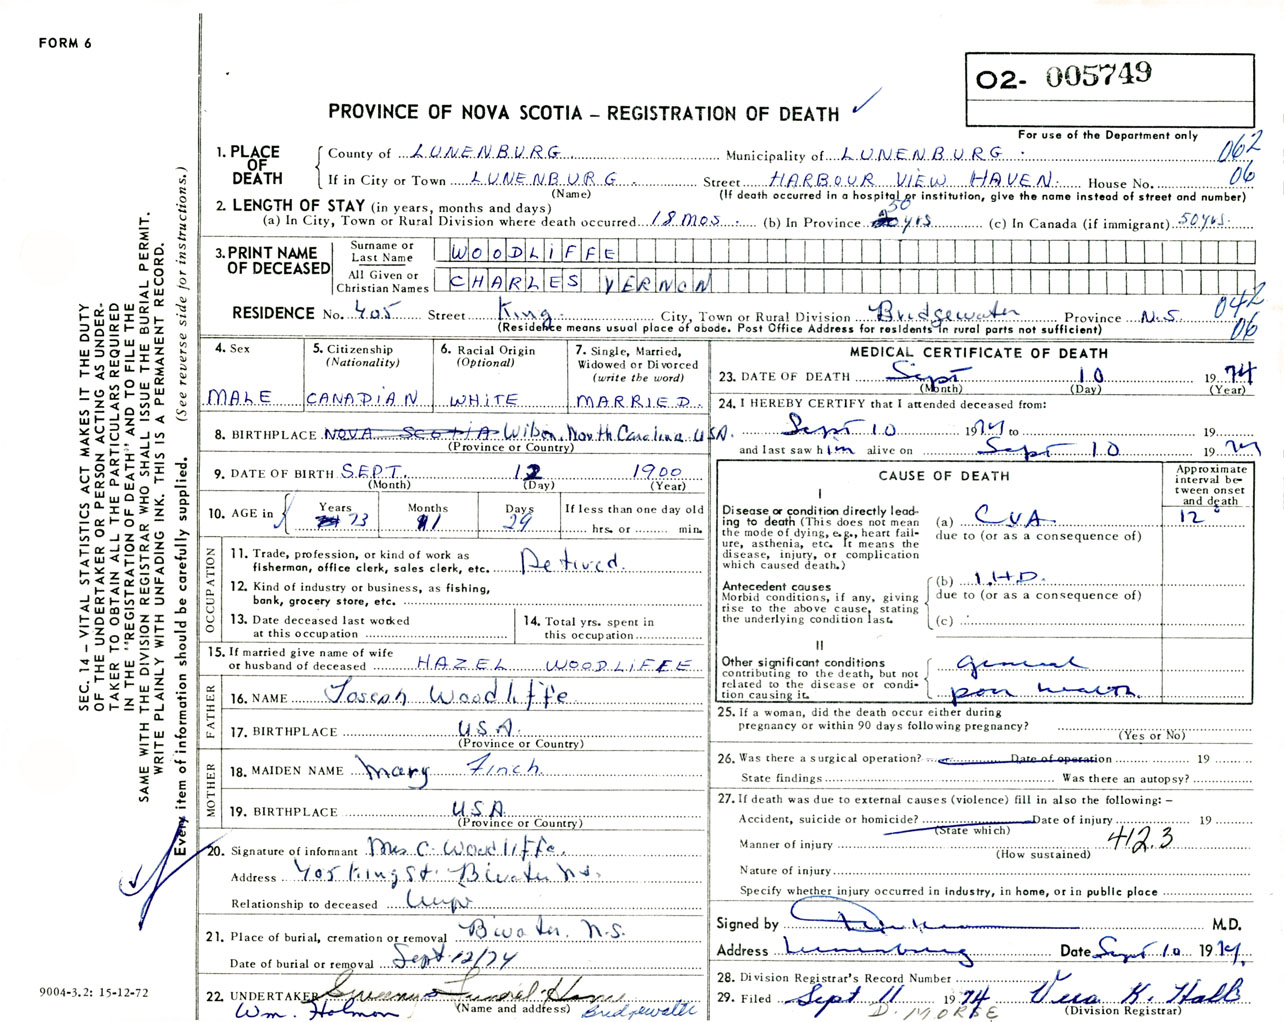 FORM 6
02- 005749
PROVINCE OF NOVA SCOTIA – REGISTRATION OF DEATH ✓
For use of the Department only
062
06
1. PLACE OF DEATH
County of LUNENBURG Municipality of LUNENBURG
If in City or Town LUNENBURG Street HARBOUR VIEW HAVEN House No.
(Name) (If death occurred in a hospital or institution, give the name instead of street and number)
2. LENGTH OF STAY (in years, months and days)
(a) In City, Town or Rural Division where death occurred 18 mos. (b) In Province 50 yrs (c) In Canada (if immigrant) 50 yrs.
3. PRINT NAME OF DECEASED
Surname or Last Name WOODLIFFE
All Given or Christian Names CHARLES VERNON
RESIDENCE No. 405 Street King City, Town or Rural Division Bridgewater Province N.S.
(Residence means usual place of abode. Post Office Address for residents in rural parts not sufficient)
042
06
4. Sex
MALE
5. Citizenship (Nationality)
CANADIAN
6. Racial Origin (Optional)
WHITE
7. Single, Married, Widowed or Divorced (write the word)
MARRIED
8. BIRTHPLACE NOVA SCOTIA Wilson, North Carolina USA.
(Province or Country)
9. DATE OF BIRTH SEPT. 12 1900
(Month) (Day) (Year)
10. AGE in
Years 73
Months 11
Days 29
If less than one day old
hrs. or min.
OCCUPATION
11. Trade, profession, or kind of work as fisherman, office clerk, sales clerk, etc. Retired.
12. Kind of industry or business, as fishing, bank, grocery store, etc.
13. Date deceased last worked at this occupation
14. Total yrs. spent in this occupation
15. If married give name of wife or husband of deceased HAZEL WOODLIFFE
FATHER
16. NAME Joseph Woodliffe
17. BIRTHPLACE U.S.A.
(Province or Country)
MOTHER
18. MAIDEN NAME Mary Finch
19. BIRTHPLACE U.S.A.
(Province or Country)
20. Signature of informant Mrs C. Woodliffe.
Address 405 King St. B'water N.S.
Relationship to deceased Wife
21. Place of burial, cremation or removal B'water. N.S.
Date of burial or removal Sept 12/74
22. UNDERTAKER Funeral Home
(Name and address) Bridgewater
Wm. Holmon
MEDICAL CERTIFICATE OF DEATH
23. DATE OF DEATH Sept 10 1974
(Month) (Day) (Year)
24. I HEREBY CERTIFY that I attended deceased from:
Sept 10 1974 to 19
and last saw him alive on Sept 10 1974
CAUSE OF DEATH
Approximate interval between onset and death
I
Disease or condition directly leading to death (This does not mean the mode of dying, e.g., heart failure, asthenia, etc. It means the disease, injury, or complication which caused death.)
(a) CVA 12°
due to (or as a consequence of)
Antecedent causes
Morbid conditions, if any, giving rise to the above cause, stating the underlying condition last.
(b) I.H.D.
due to (or as a consequence of)
(c)
II
Other significant conditions contributing to the death, but not related to the disease or condition causing it.
general
poor health.
25. If a woman, did the death occur either during pregnancy or within 90 days following pregnancy?
(Yes or No)
26. Was there a surgical operation? Date of operation 19
State findings Was there an autopsy?
27. If death was due to external causes (violence) fill in also the following: –
Accident, suicide or homicide? Date of injury 19
(State which)
412.3
Manner of injury
(How sustained)
Nature of injury
Specify whether injury occurred in industry, in home, or in public place
Signed by M.D.
Address Lunenburg Date Sept 10 1974.
28. Division Registrar's Record Number
29. Filed Sept 11 1974 Vera K. Hall
D. MORSE (Division Registrar)
SEC. 14 – VITAL STATISTICS ACT MAKES IT THE DUTY
OF THE UNDERTAKER OR PERSON ACTING AS UNDER-
TAKER TO OBTAIN ALL THE PARTICULARS REQUIRED
IN THE "REGISTRATION OF DEATH" AND TO FILE THE
SAME WITH THE DIVISION REGISTRAR WHO SHALL ISSUE THE BURIAL PERMIT.
WRITE PLAINLY WITH UNFADING INK. THIS IS A PERMANENT RECORD.
Every item of information should be carefully supplied. (See reverse side for instructions.)
9004-3.2: 15-12-72